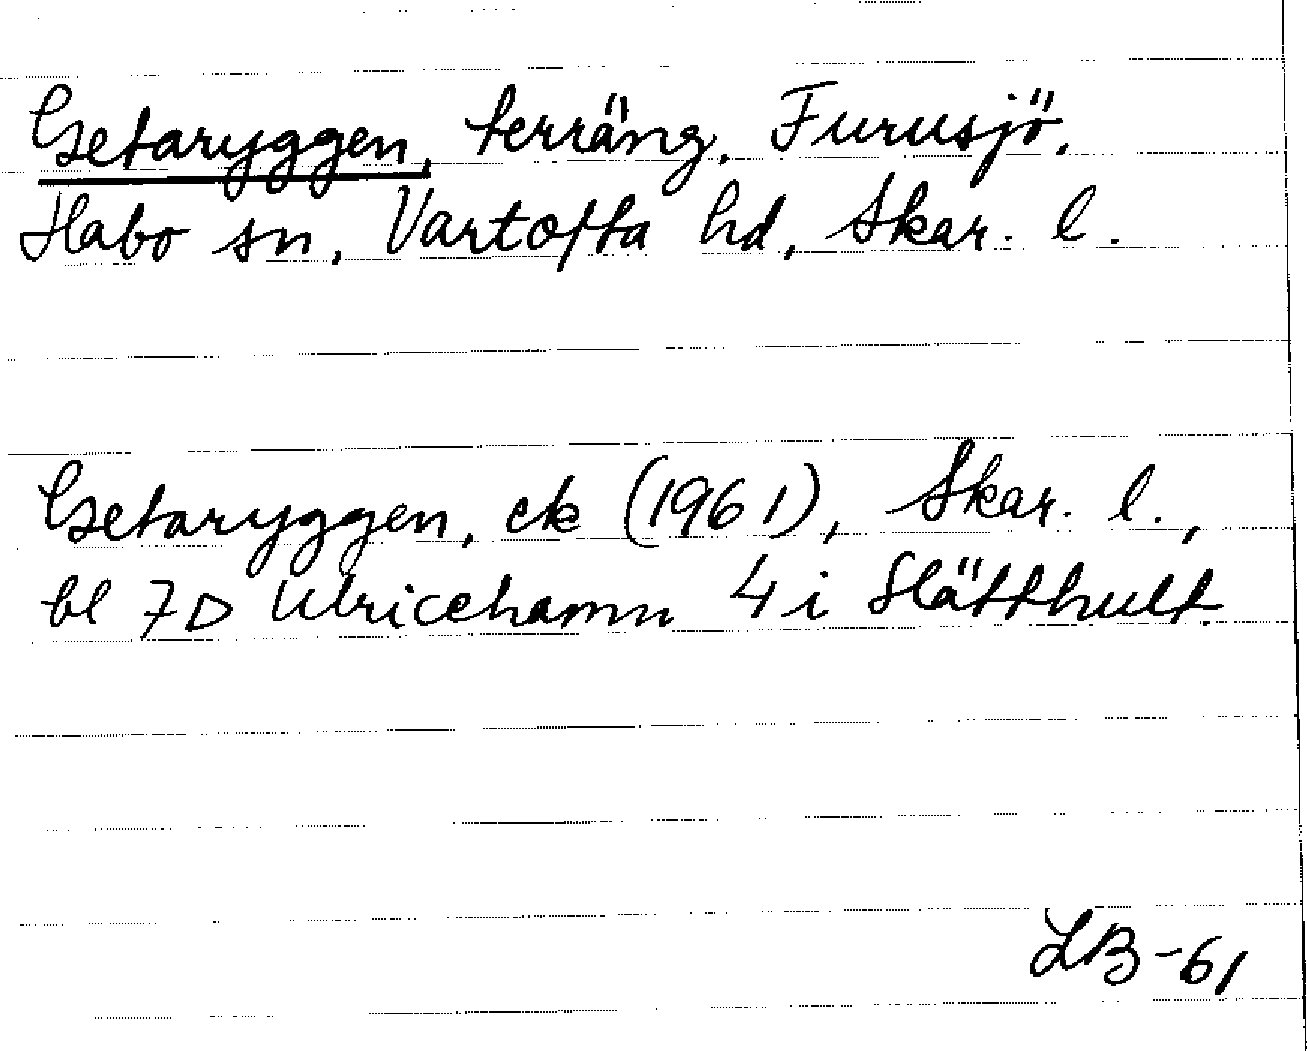 Getaryggen, terräng, Furusjö,
Habo sn, Vartofta hd, Skar. l.
Getaryggen, ek (1961), Skar. l.,
bl 7D Ulricehamn 4 i Slätthult.
LB-61